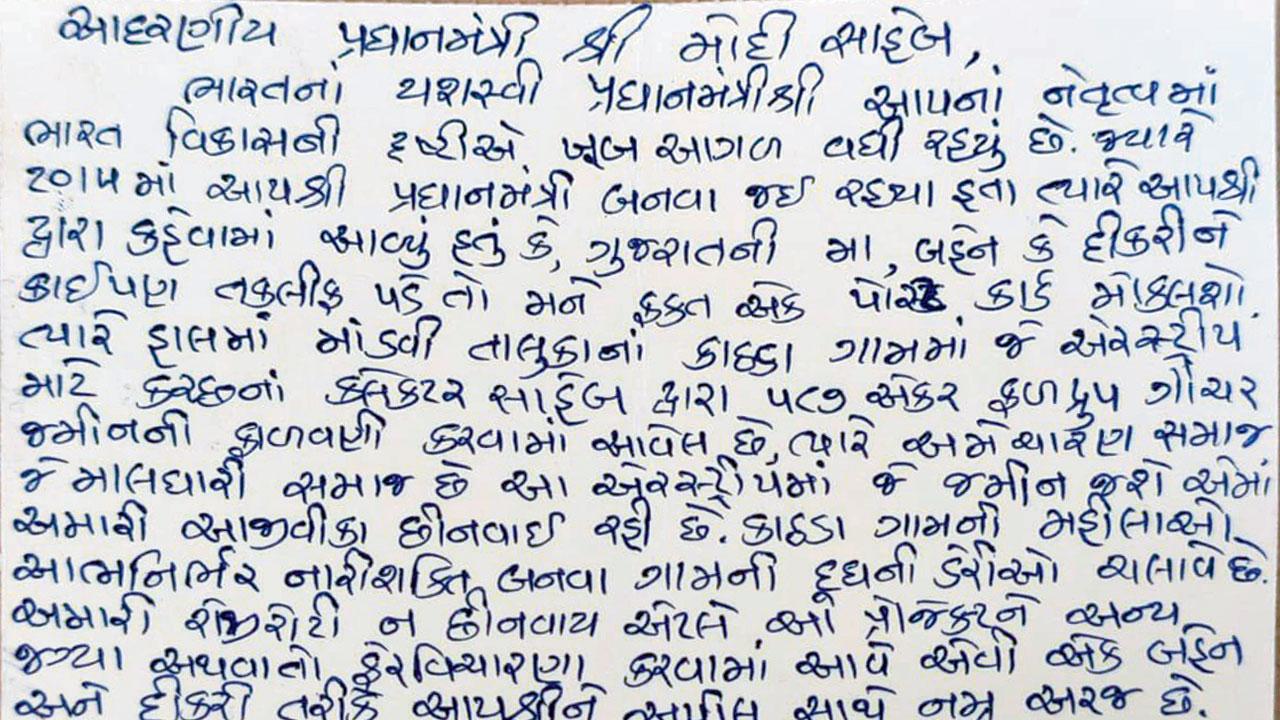 આદરણીય પ્રધાનમંત્રી શ્રી મોદી સાહેબ,
ભારતનાં યશસ્વી પ્રધાનમંત્રીશ્રી આપનાં નેતૃત્વમાં
ભારત વિકાસની દૃષ્ટીએ ખૂબ આગળ વધી રહ્યું છે. જ્યારે
૨૦૧૫માં આપશ્રી પ્રધાનમંત્રી બનવા જઈ રહ્યા હતા ત્યારે આપશ્રી
દ્વારા કહેવામાં આવ્યું હતું કે, ગુજરાતની મા, બહેન કે દીકરીને
કાઈપણ તકલીફ પડે તો મને ફક્ત એક પોસ્ટ કાર્ડ મોકલશો.
ત્યારે હાલમાં માંડવી તાલુકાનાં કાઠડા ગામમાં જે એરસ્ટ્રીપ
માટે કચ્છનાં કલેકટર સાહેબ દ્વારા ૫૮૭ એકર ફળદ્રુપ ગૌચર
જમીનની ફાળવણી કરવામાં આવેલ છે, ત્યારે અમે ચારણ સમાજ
જે માલધારી સમાજ છે આ એરસ્ટ્રીપમાં જે જમીન જશે એમાં
અમારી આજીવીકા છીનવાઈ રહી છે. કાઠડા ગામની મહીલાઓ
આત્મનિર્ભર નારીશક્તિ બનવા ગામની દૂધની ડેરીઓ ચલાવે છે.
અમારી રોજીરોટી ન છીનવાય એટલે આ પ્રોજેકટને અન્ય
જગ્યા અથવા તો ફેરવિચારણા કરવામાં આવે એવી એક બહેન
અને દીકરી તરીકે આપશ્રીને અપીલ સાથે નમ્ર અરજ છે.